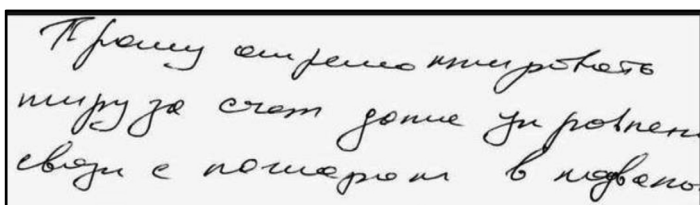 Прошу отремонтировать
тиру за счет домоуправлени
связи с пожаром в подвало